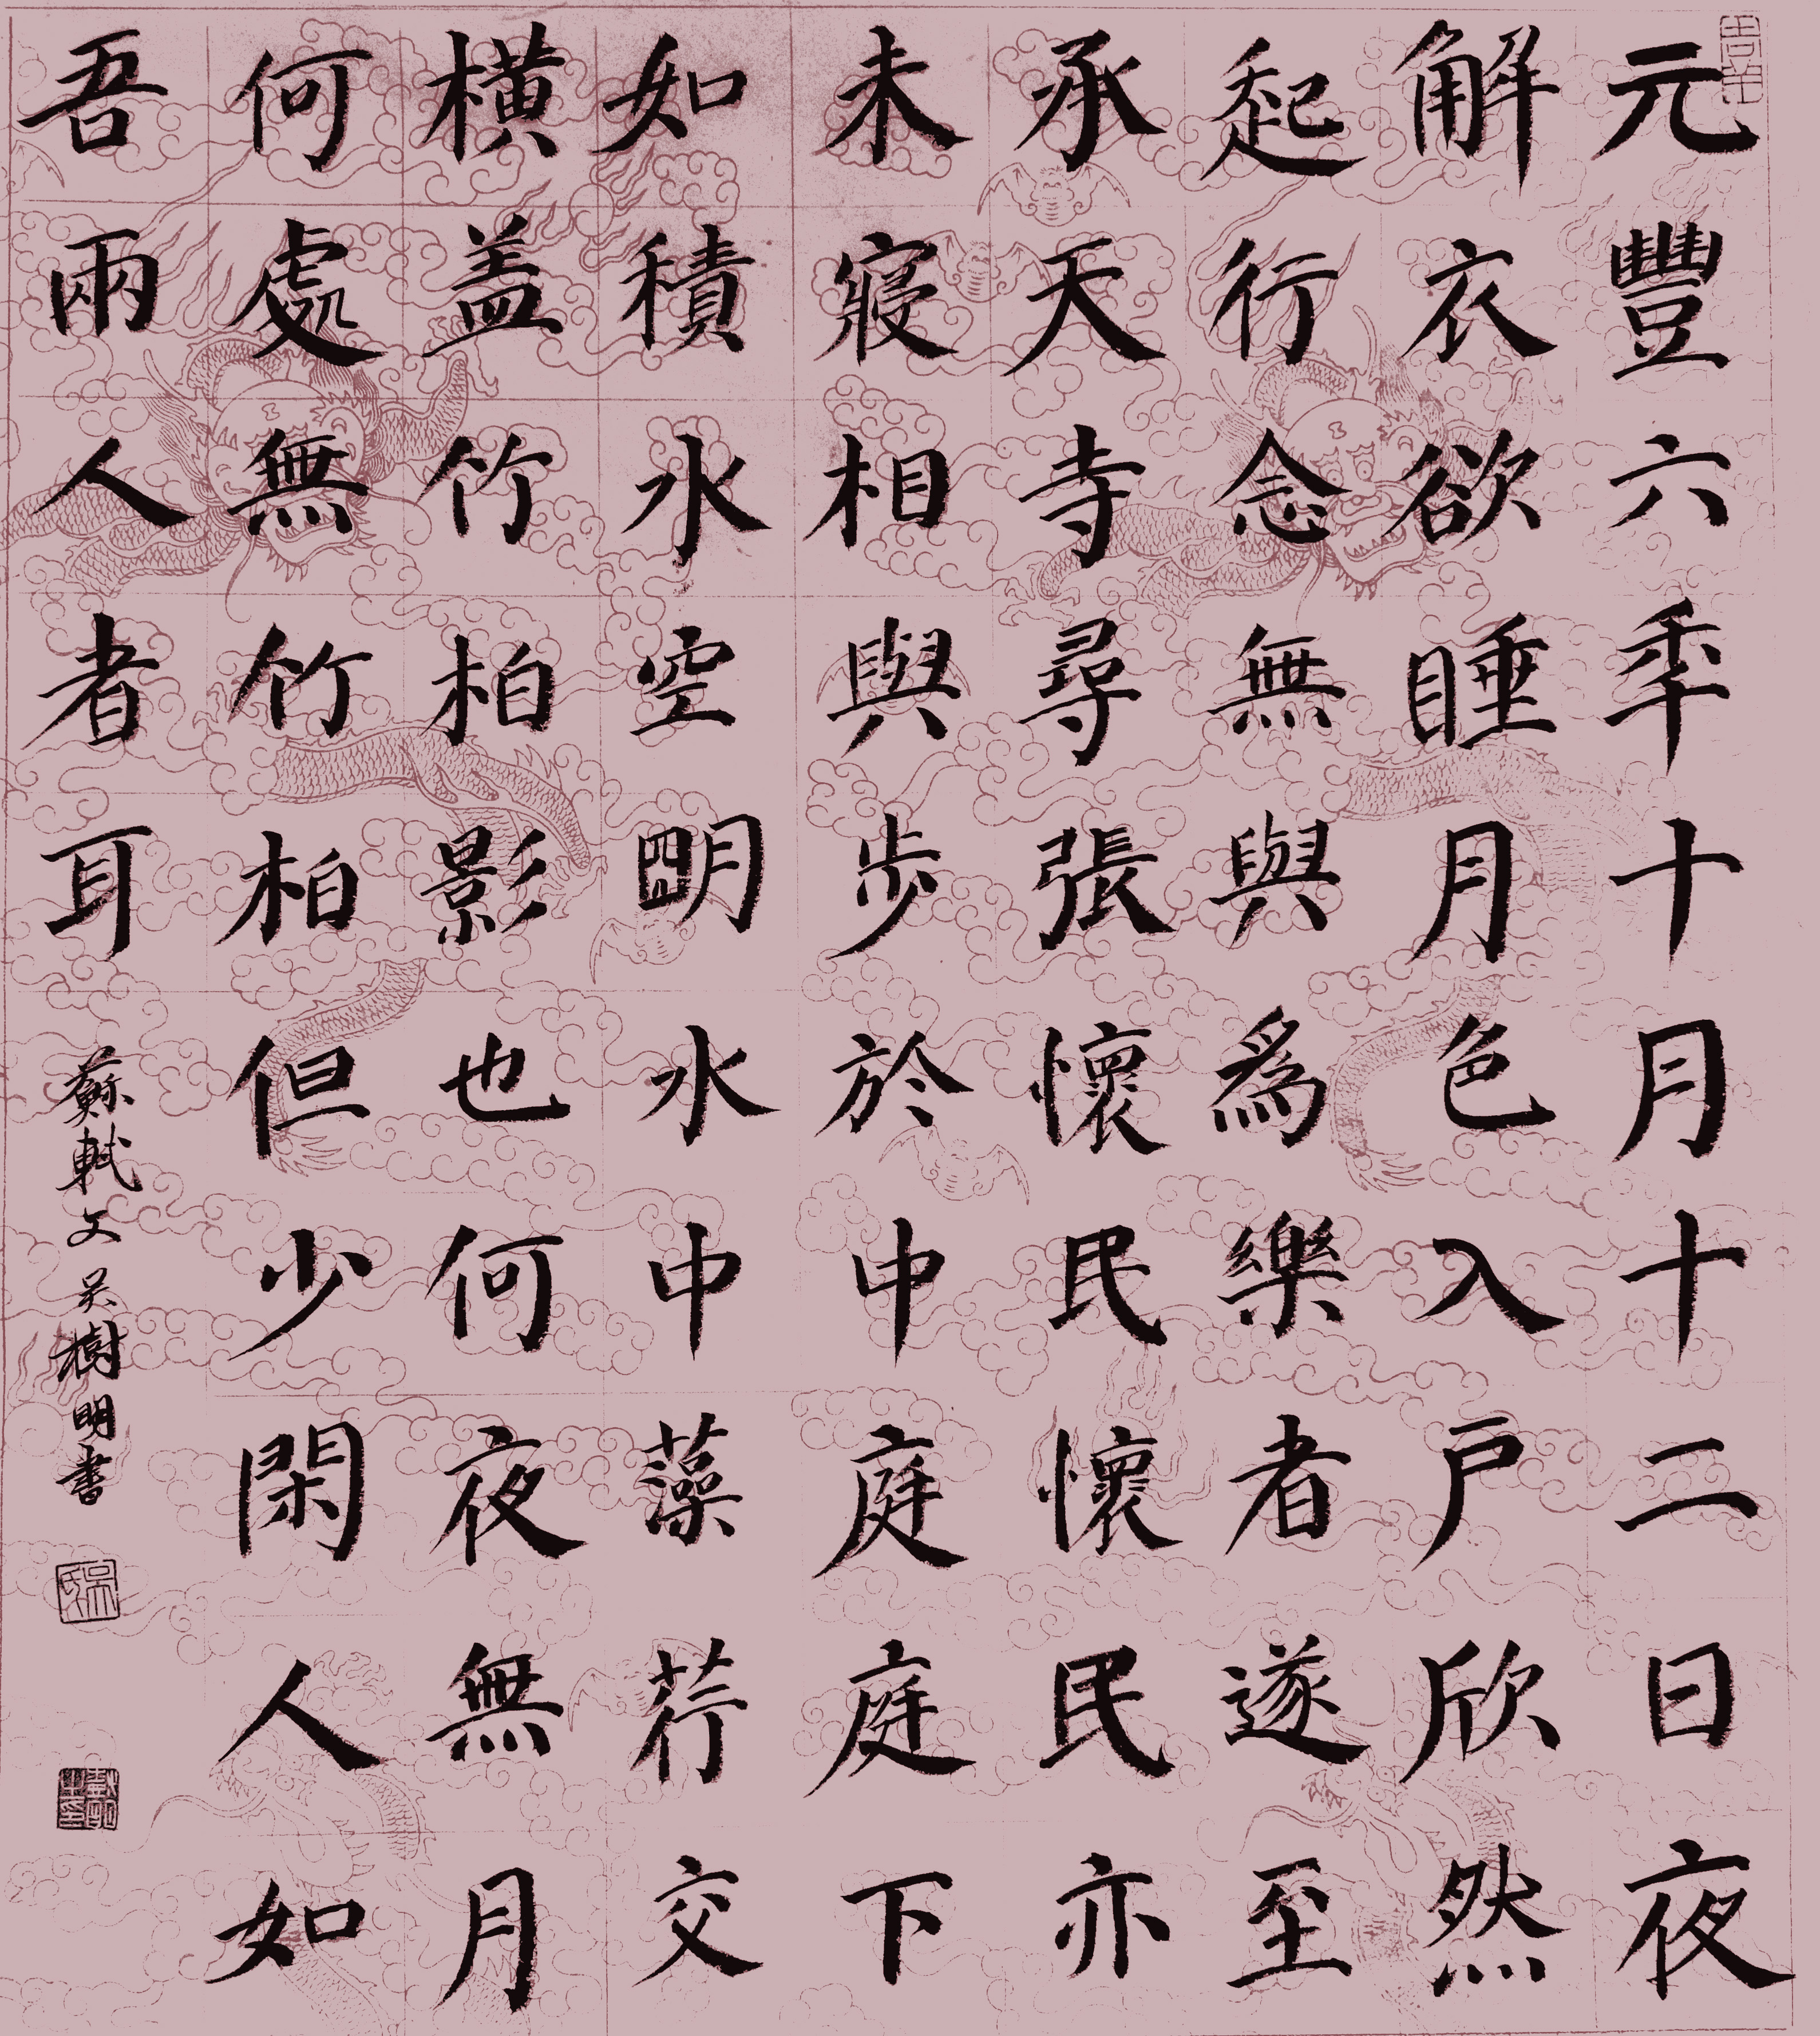 元豐六年十月十二日夜
解衣欲睡月色入戶欣然
起行念無與爲樂者遂至
承天寺尋張懷民懷民亦
未寢相與步於中庭庭下
如積水空明水中藻荇交
橫盖竹柏影也何夜無月
何處無竹柏但少閑人如
吾兩人者耳
蘇軾文 吴樹明書
吳氏